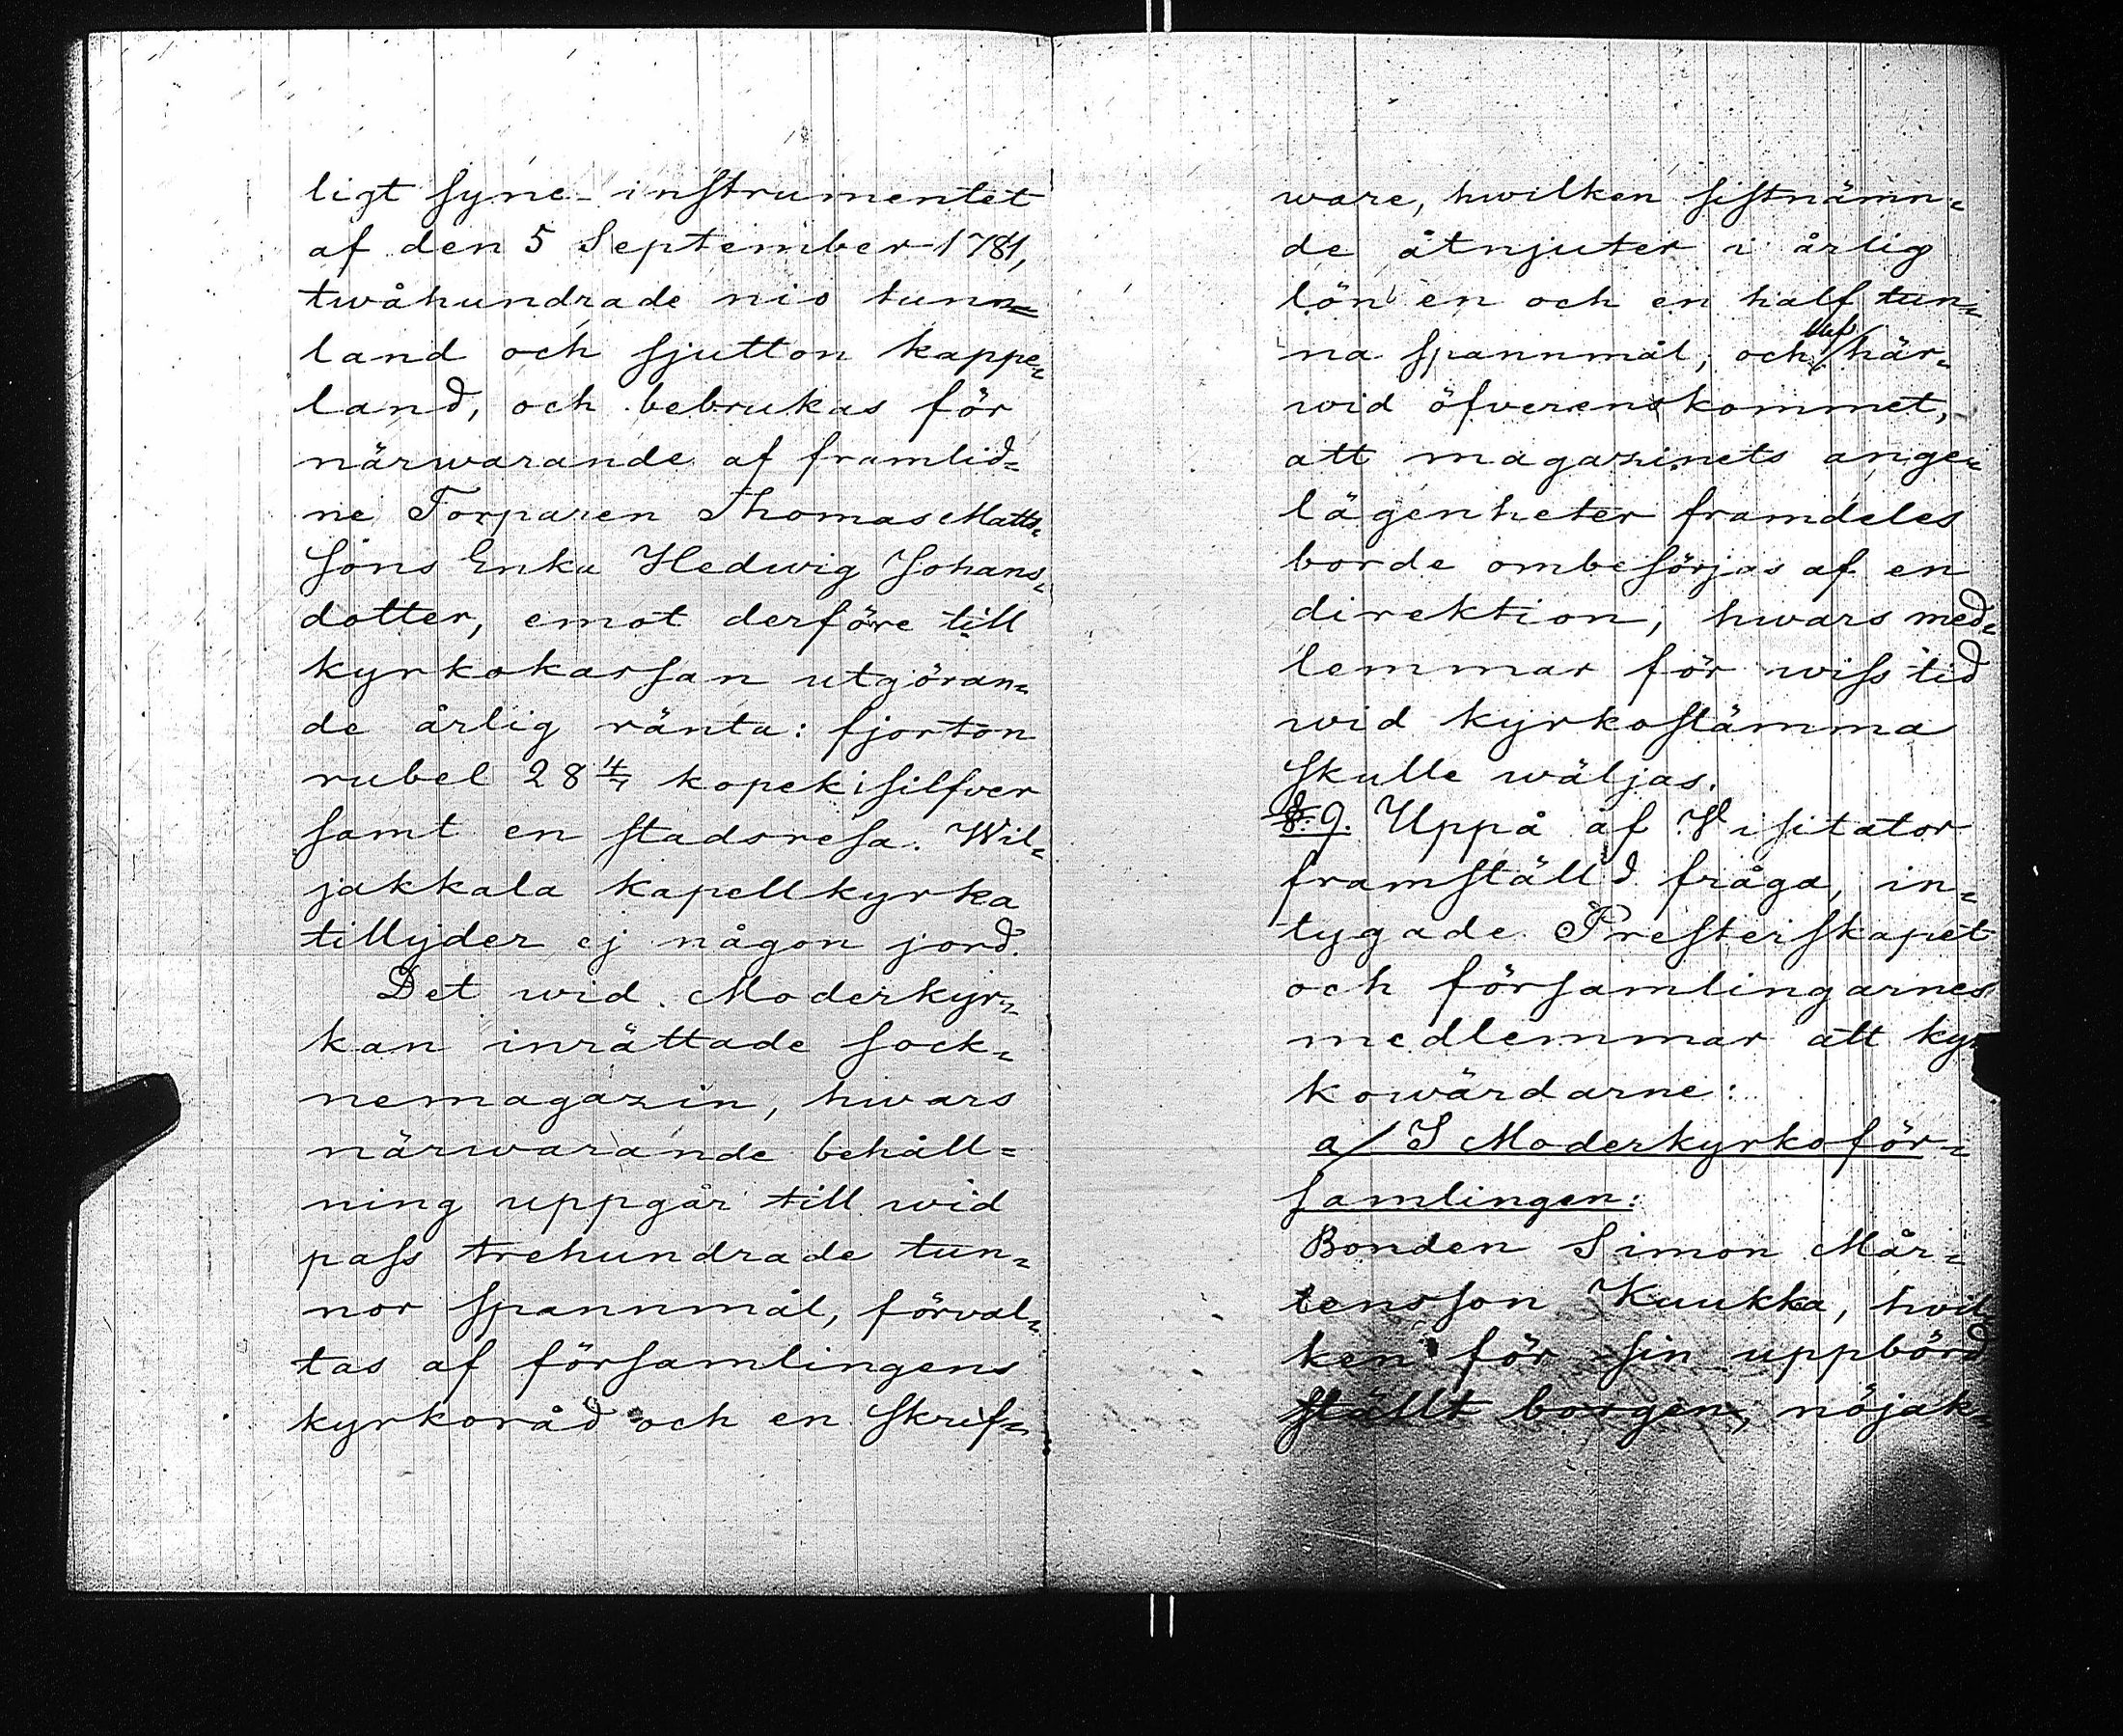 ligt syne-instrumentet
af den 5 September 1781,
twåhundrade nio tunn=
land och sjutton kappe=
land, och bebrukas för
närwarande af framlid=
ne Torparen Thomas Matts=
sons Enka Hedwig Johans=
dotter, emot derföre till
kyrkokassan utgöran=
de årlig ränta: fjorton
rubel 28 4/7 kopek i silfver
samt en stadsresa. Wil=
jakkala kapellkyrka
tillyder ej någon jord.
Det wid Moderkyr=
kan inrättade sock=
nemagazin, hwars
närwarande behåll=
ning uppgår till wid
pass trehundrade tun=
nor spannmål, förval=
tas af församlingens
kyrkoråd och en skrif=
ware, hwilken sistnämn=
de åtnjuter i årlig
lön en och en half tun=
na spannmål, och blef här=
wid öfverenskommet,
att magazinets ange=
lägenheter framdeles
borde ombesörjas af en
direktion, hwars med=
lemmar för wiss tid
wid kyrkostämma
skulle wäljas.
§ 9. Uppå af Visitator
framställd fråga, in=
tygade Presterskapet
och församlingarnes
medlemmar att kyr
kowärdarne:
a/ I Moderkyrkoför=
samlingen:
Bonden Simon Mår=
tensson Kuukka, hwil=
ken för sin uppbörd
ställt borgen, nöjak=